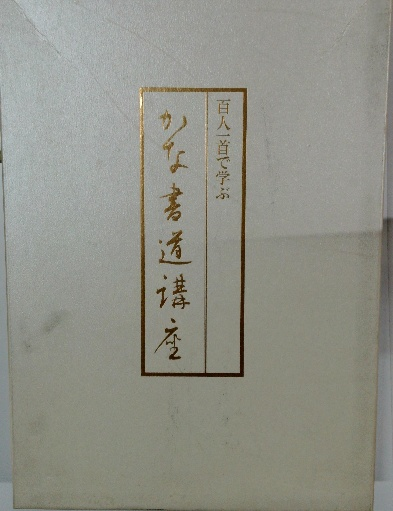 百人一首で学ぶ
かな書道講座